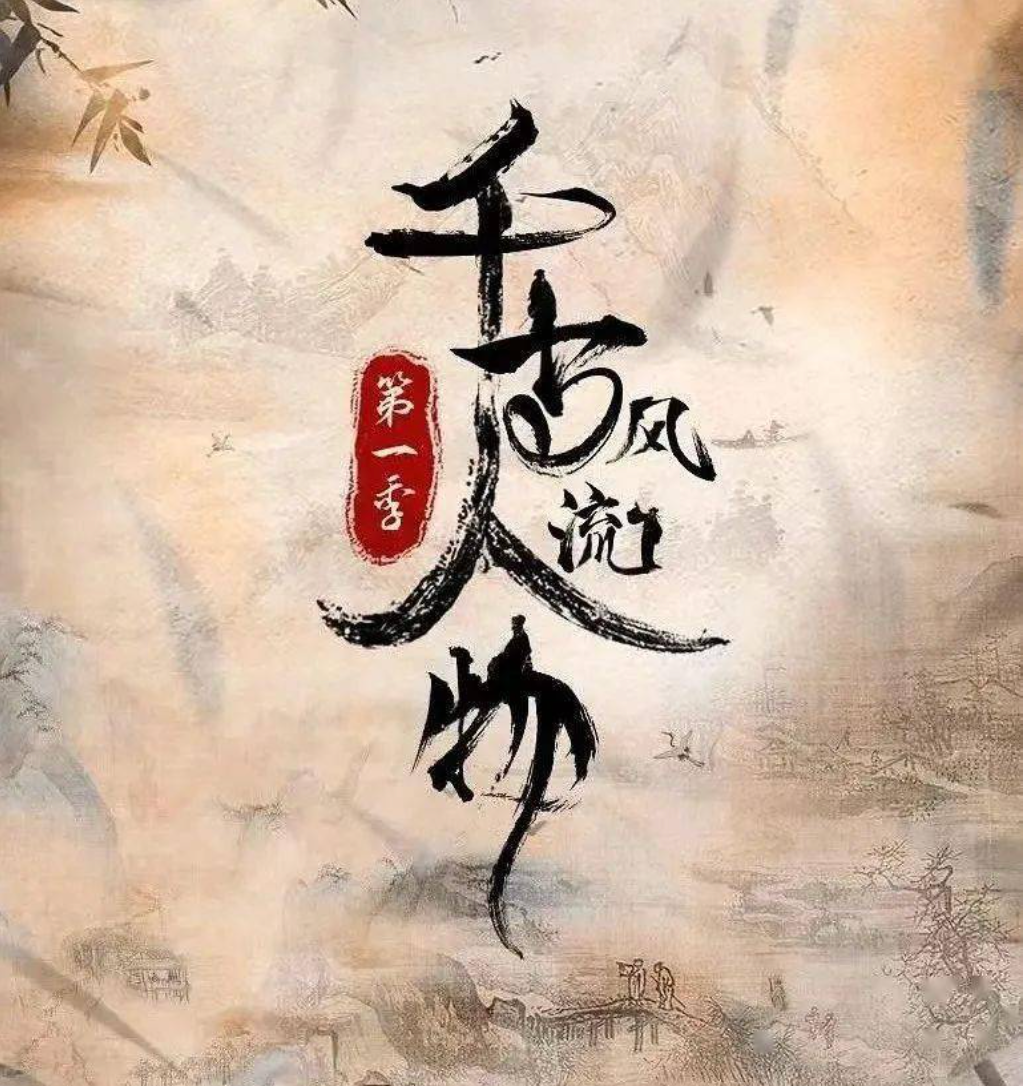 千古风流人物
第一季